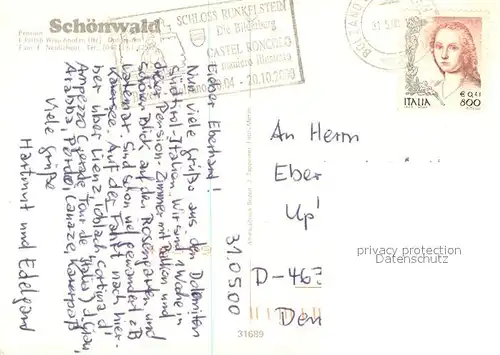 Pension
Schönwald
SCHLOSS RUNKELSTEIN
Die Bilderburg
CASTEL RONCOLO
maniero illustrato
04 - 20.10.2000
BOLZANO
ITALIA
€ 0,41
800
Lieber Eberhard!
Nun viele Grüße aus den Dolomiten
Südtirol-Italien. Wir sind 1 Woche in
dieser Pension. Zimmer mit Balkon und
schönen Blick auf den Rosengarten und
Latemar. Sind schon viel gewandert z.B
Karersee. Auf der Fahrt nach hier-
her über Lienz, Toblach, Cortina d'
Ampezzo (gerade Tour de Italia)
Arabba, Pordoi, Canazei, Karerpaß
Viele Grüße
Hartmut und Edelgard
31.05.00
An Herrn
Eber
Up
D-463
Den
31689
privacy protection
Datenschutz